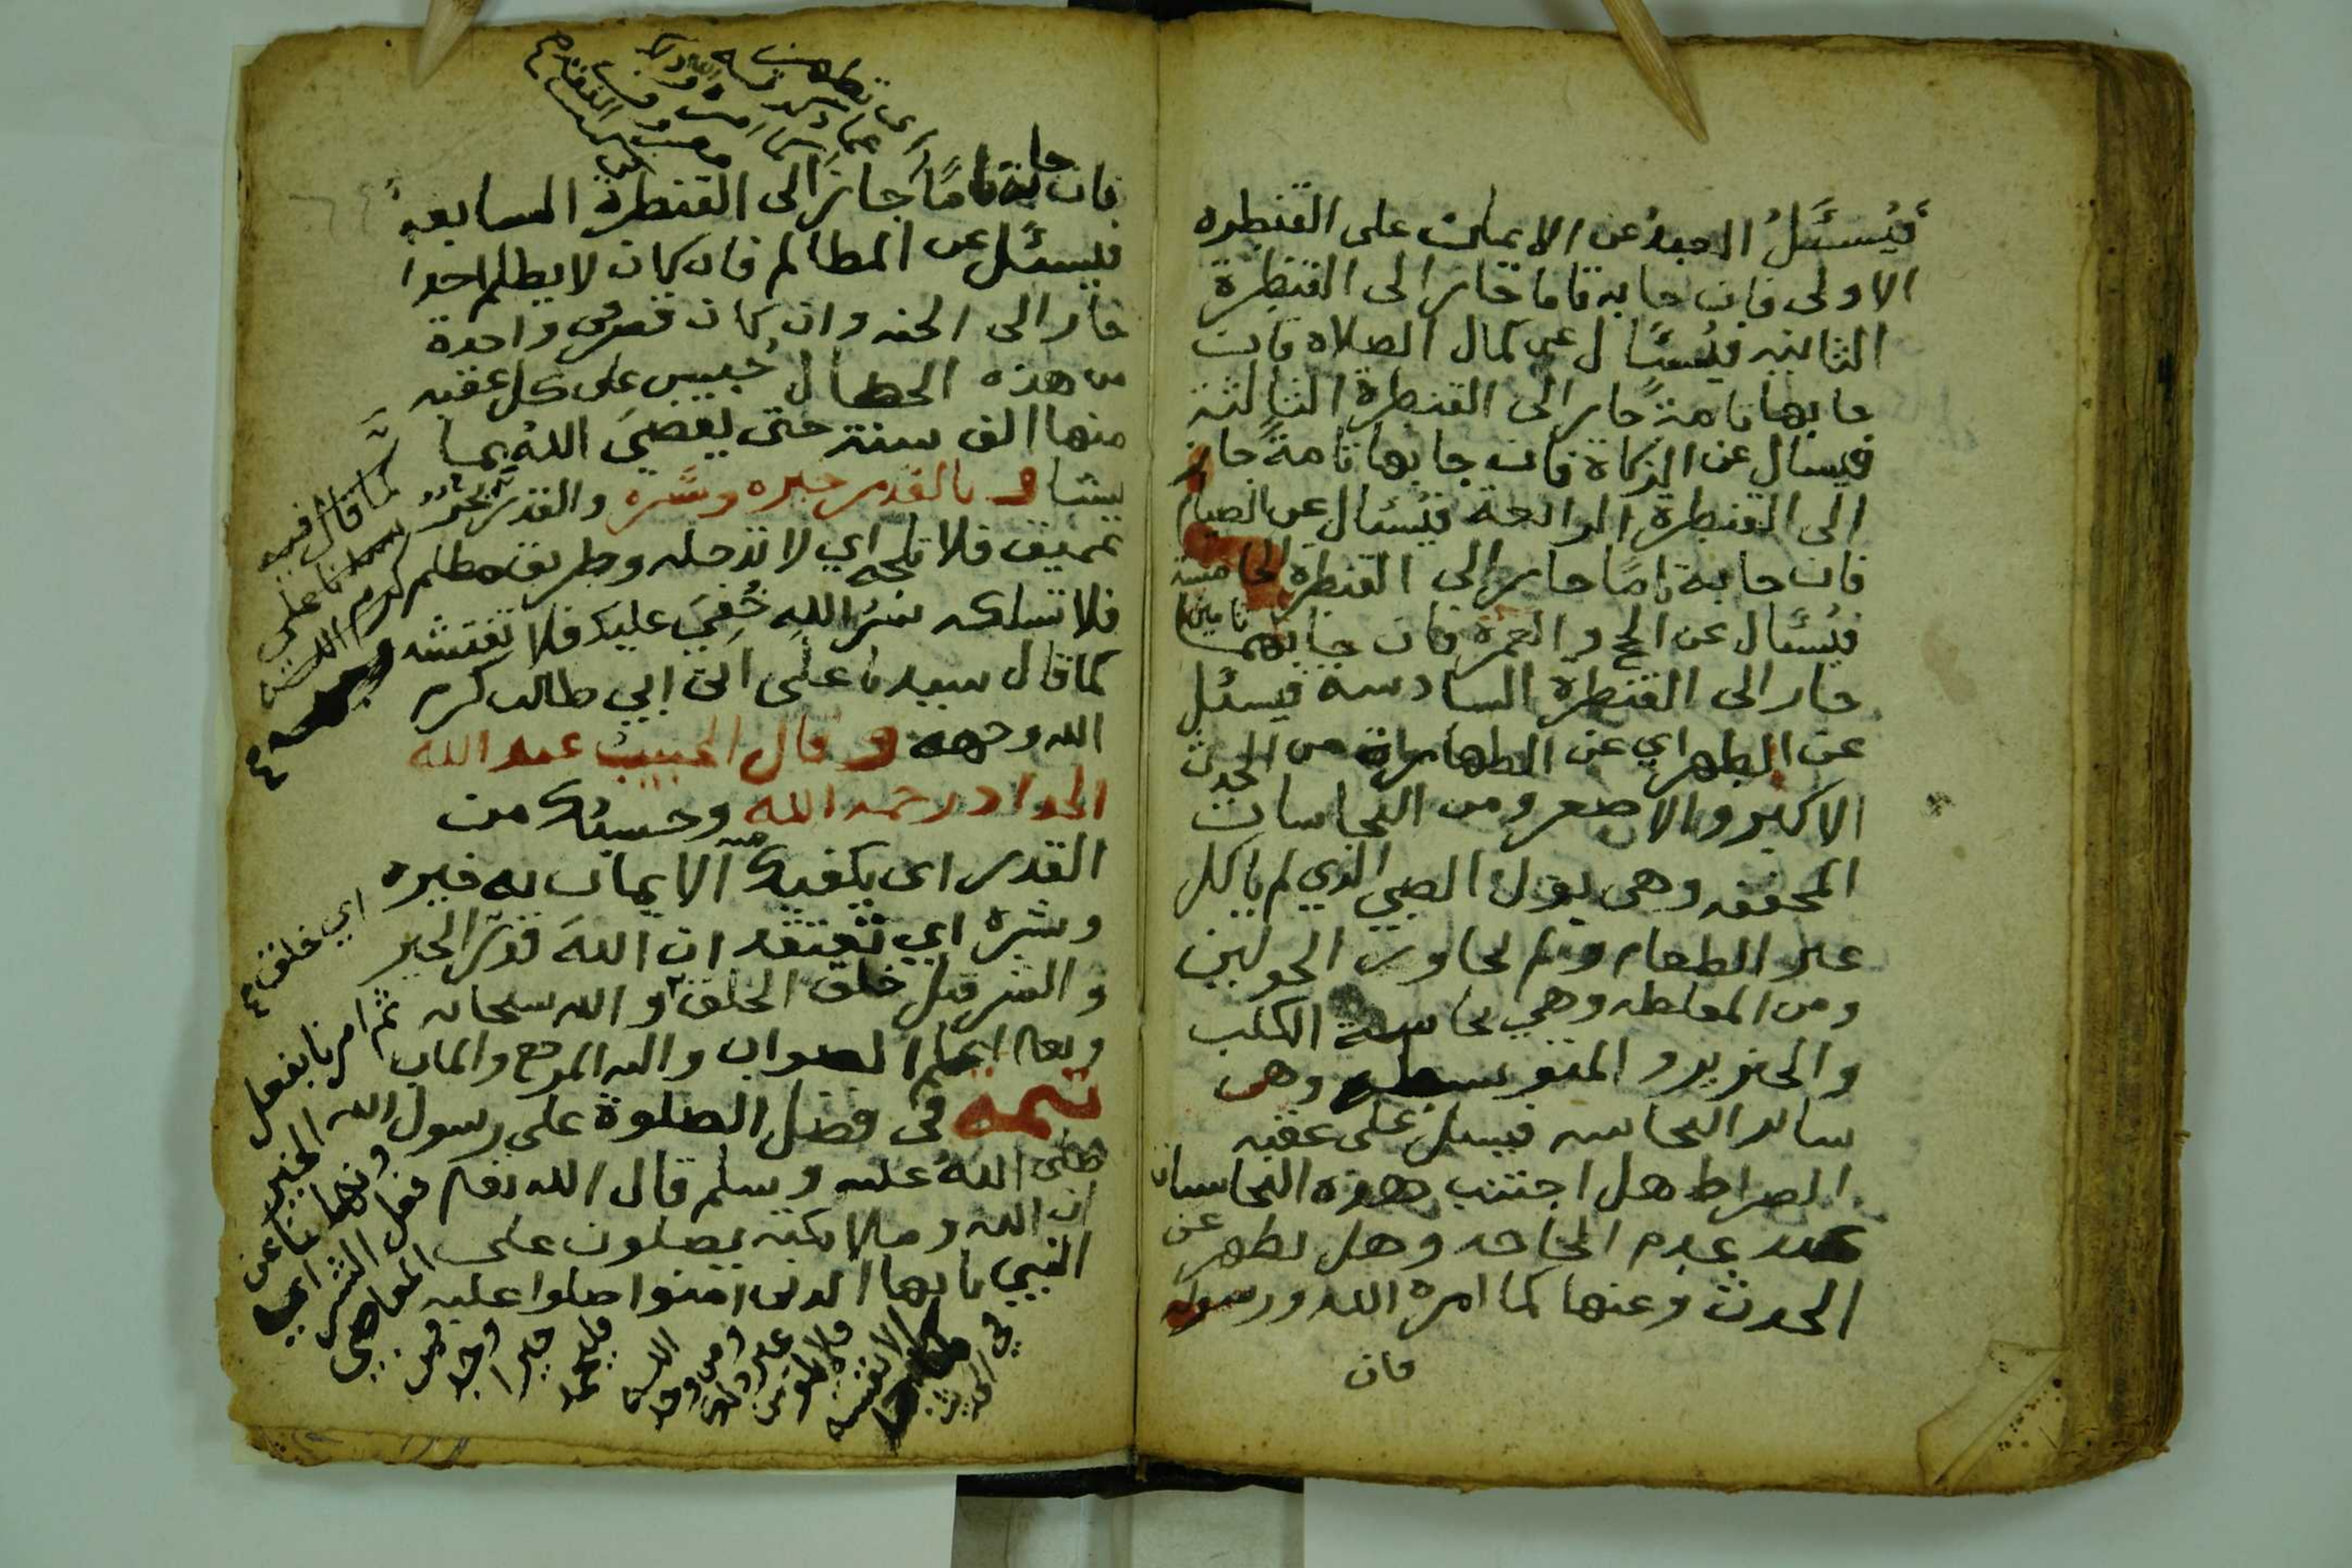 فيُسئَلُ العبدُ عن الايمان على القنطره
الاولى فان جا به تاما جاز الى القنطرة
الثانيه فيُسئَال عن كمال الصلاه فان
جا بها تامة جاز الى القنطرة الثالثة
فيسال عن الزكاة فان جا بها تامة جاز
الى القنطرة الرابعة فيُسئال عن الصيام
فان جا به تامًا جاز الى القنطرة الخامسة
فيُسئَال عن الحج والعمرة فان جا بهما تامين
جاز الى القنطرة السادسة فيسئل
عن الطهر اي عن الطهارة من الحدث
الاكبر والاصغر ومن النجاسات
المخففه وهي بول الصبي الذي لم ياكل
غير الطعام ولم يجاوز الحولين
ومن المغلظه وهي نجاسة الكلب
والخنزير والمتوسطه وهي
سائر النجاسه فيسئل على عقبه
الصراط هل اجتنب هذه النجاسات
عند عدم الحاجه وهل يطهر عن
الحدث وعنها كما امره الله ورسوله
فان
فان جا به تامًا جاز الى القنطرة السابعة
فيسئل عن المظالم فان كان لا يظلم احدا
جاز الى الجنه وان كان قصر في واحدة
من هذه الخصال حُبِس على كل عقبه
منها الف سنة حتى يقضيَ اللهُ بما
يشا و بالقدر خيره وشره والقدر بحر
عميق فلا تلجه اي لا تدخله وطريق مظلم
فلا تسلكه سرُ اللهِ خُفِيَ عليك فلا تفتشه
كما قال سيدنا على ابن ابي طالب كرم
الله وجهه و قال الحبيب عبد الله
الحداد رحمه الله وحسبُك من
القدر اى يكفيك منه الايمان به خيره
وشره اي تعتقد ان اللهَ قدّر الخير
والشر قبل خلق الخلق و الله سبحانه
وتعالى اعلم الصواب واليه المرجع والماب
تتمه في فضل الصلوة على رسول الله
صلى اللهُ عليه وسلم قال الله تعالى
ان الله وملائكته يصلون على
النبي يا يها الذين امنوا صلوا عليه
كما قال فيه
سيدنا على
كرم الله
وجهه
اي خلق
ثم امرنا بفعل
الخير
ونهانا عن
فعل الشر اي
المعاصي